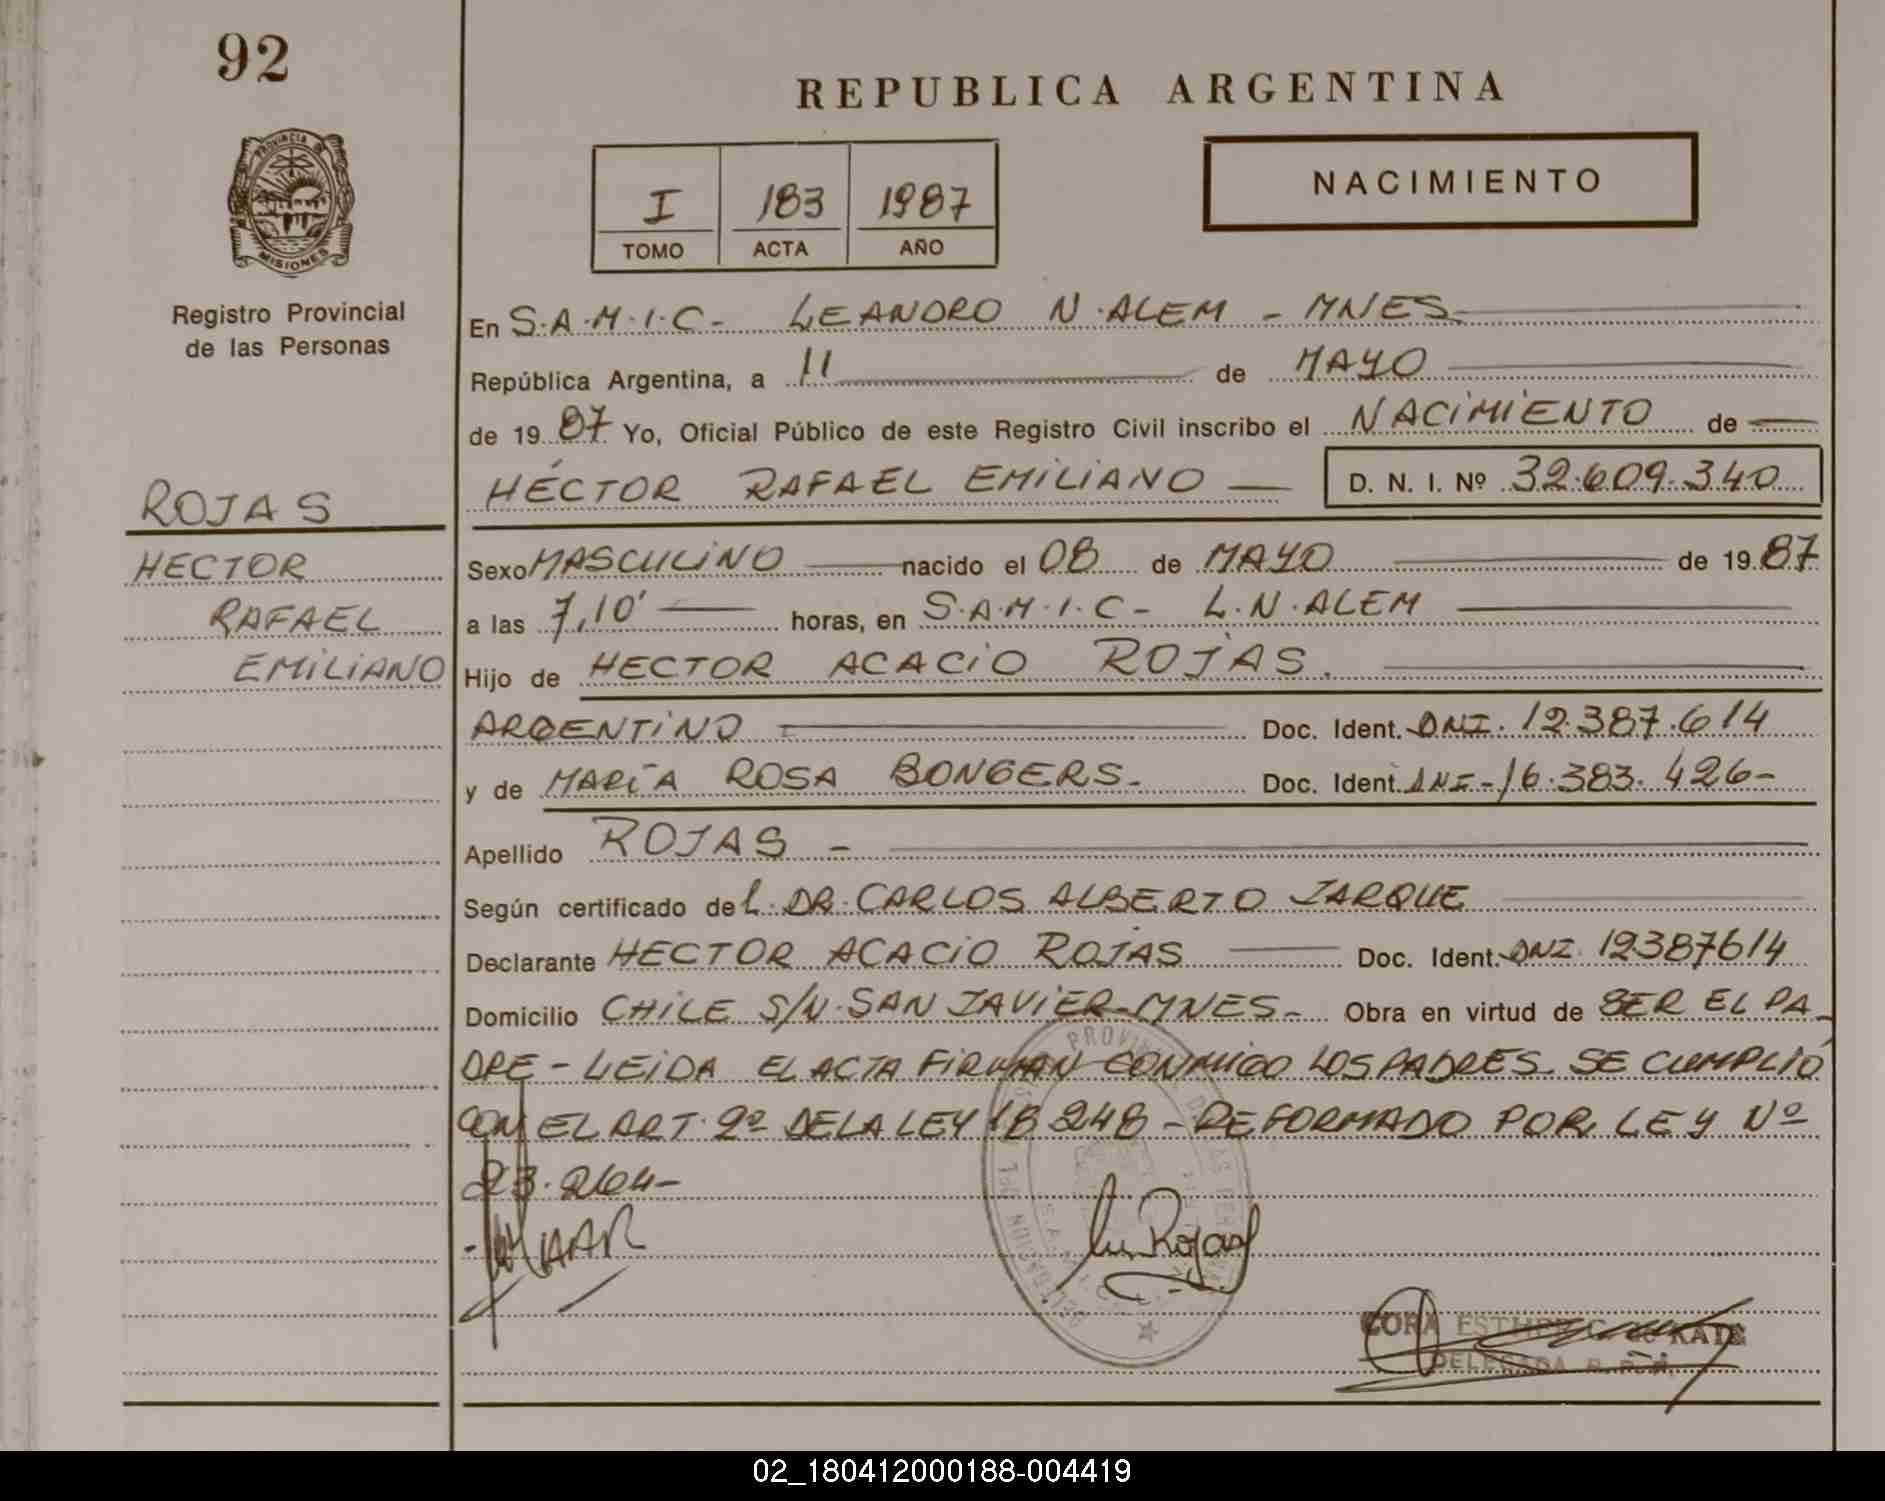 92
REPUBLICA ARGENTINA
PROVINCIA D
MISIONES
Registro Provincial
de las Personas
I 183 1987
TOMO ACTA AÑO
NACIMIENTO
En S.A.M.I.C- LEANDRO N.ALEM - MNES.
República Argentina, a 11 de MAYO
de 1987 Yo, Oficial Público de este Registro Civil inscribo el NACIMIENTO de
HÉCTOR RAFAEL EMILIANO D. N. I. Nº 32.609.340
ROJAS
HECTOR
RAFAEL
EMILIANO
Sexo MASCULINO nacido el 08 de MAYO de 1987
a las 7,10' horas, en S.A.M.I.C- L.N.ALEM
Hijo de HECTOR ACACIO ROJAS.
ARGENTINO Doc. Ident. DNI. 12.387.614
y de MARÍA ROSA BONGERS- Doc. Ident. DNI-16.383.426-
Apellido ROJAS -
Según certificado del DR. CARLOS ALBERTO JARQUE
Declarante HECTOR ACACIO ROJAS Doc. Ident. DNI 12387614
Domicilio CHILE S/N. SAN JAVIER-MNES- Obra en virtud de SER EL PA-
DRE - LEIDA EL ACTA FIRMAN CONMIGO LOS PADRES. SE CUMPLIÓ
CON EL ART. 2º DE LA LEY 18248 - REFORMADO POR LEY Nº
23.264-
Rojas
CORA ESTHER
DELEGADA R. P. P.
02_180412000188-004419